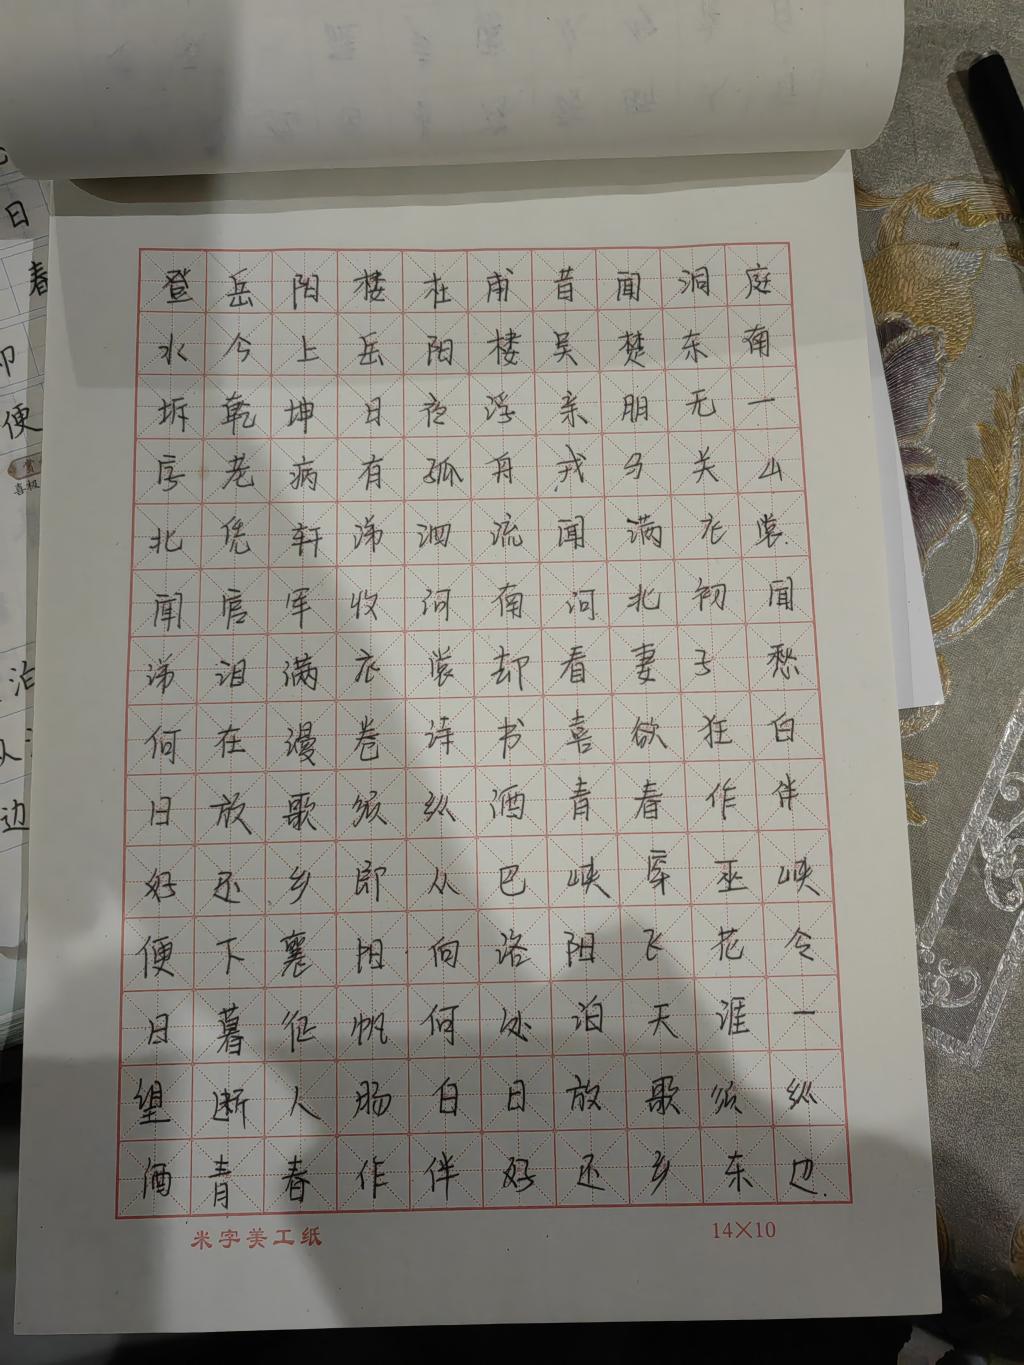 登岳阳楼杜甫昔闻洞庭
水今上岳阳楼吴楚东南
坼乾坤日夜浮亲朋无一
字老病有孤舟戎马关山
北凭轩涕泗流闻满衣裳.
闻官军收河南河北初闻
涕泪满衣裳却看妻子愁
何在漫卷诗书喜欲狂白
日放歌须纵酒青春作伴
好还乡即从巴峡穿巫峡
便下襄阳向洛阳飞花令
日暮征帆何处泊天涯一
望断人肠白日放歌须纵
酒青春作伴好还乡东边.
米字美工纸 14×10
日
春
便
泊
边